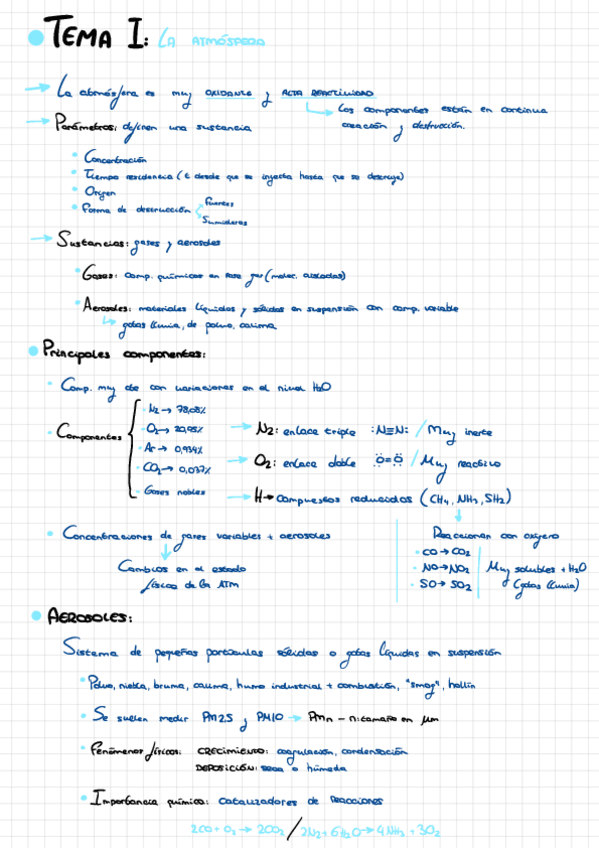 TEMA I: LA ATMÓSFERA
La atmósfera es muy OXIDANTE y ALTA REACTIVIDAD
Los componentes están en continua
creación y destrucción.
Parámetros: definen una sustancia
Concentración
Tiempo residencia (t desde que se inyecta hasta que se destruye)
Origen
Forma de destrucción
Fuentes
Sumideros
Sustancias: gases y aerosoles
Gases: comp. químicos en fase gas (molec. aisladas)
Aerosoles: materiales líquidos y sólidos en suspensión con comp. variable
gotas lluvia, de polvo, calima
Principales componentes:
Comp. muy cte con variaciones en el nivel H2O
Componentes
N2 → 78,08%
O2 → 20,95%
Ar → 0,934%
CO2 → 0,037%
Gases nobles
N2: enlace triple :N≡N: / Muy inerte
O2: enlace doble Ö=Ö / Muy reactivo
H → compuestos reducidos (CH4, NH3, SH2)
Concentraciones de gases variables + aerosoles
Cambios en el estado
físico de la ATM
Reaccionan con oxígeno
CO → CO2
NO → NO2
SO → SO2
Muy solubles + H2O
(gotas lluvia)
AEROSOLES:
Sistema de pequeñas partículas sólidas o gotas líquidas en suspensión
Polvo, niebla, bruma, calima, humo industrial + combustión, "smog", hollín
Se suelen medir PM2.5 y PM10 → PMn - n: tamaño en μm
Fenómenos físicos: CRECIMIENTO: coagulación, condensación
DEPOSICIÓN: seca o húmeda
Importancia química: catalizadores de reacciones
2CO + O2 → 2CO2 / 2N2 + 6H2O → 4NH3 + 3O2